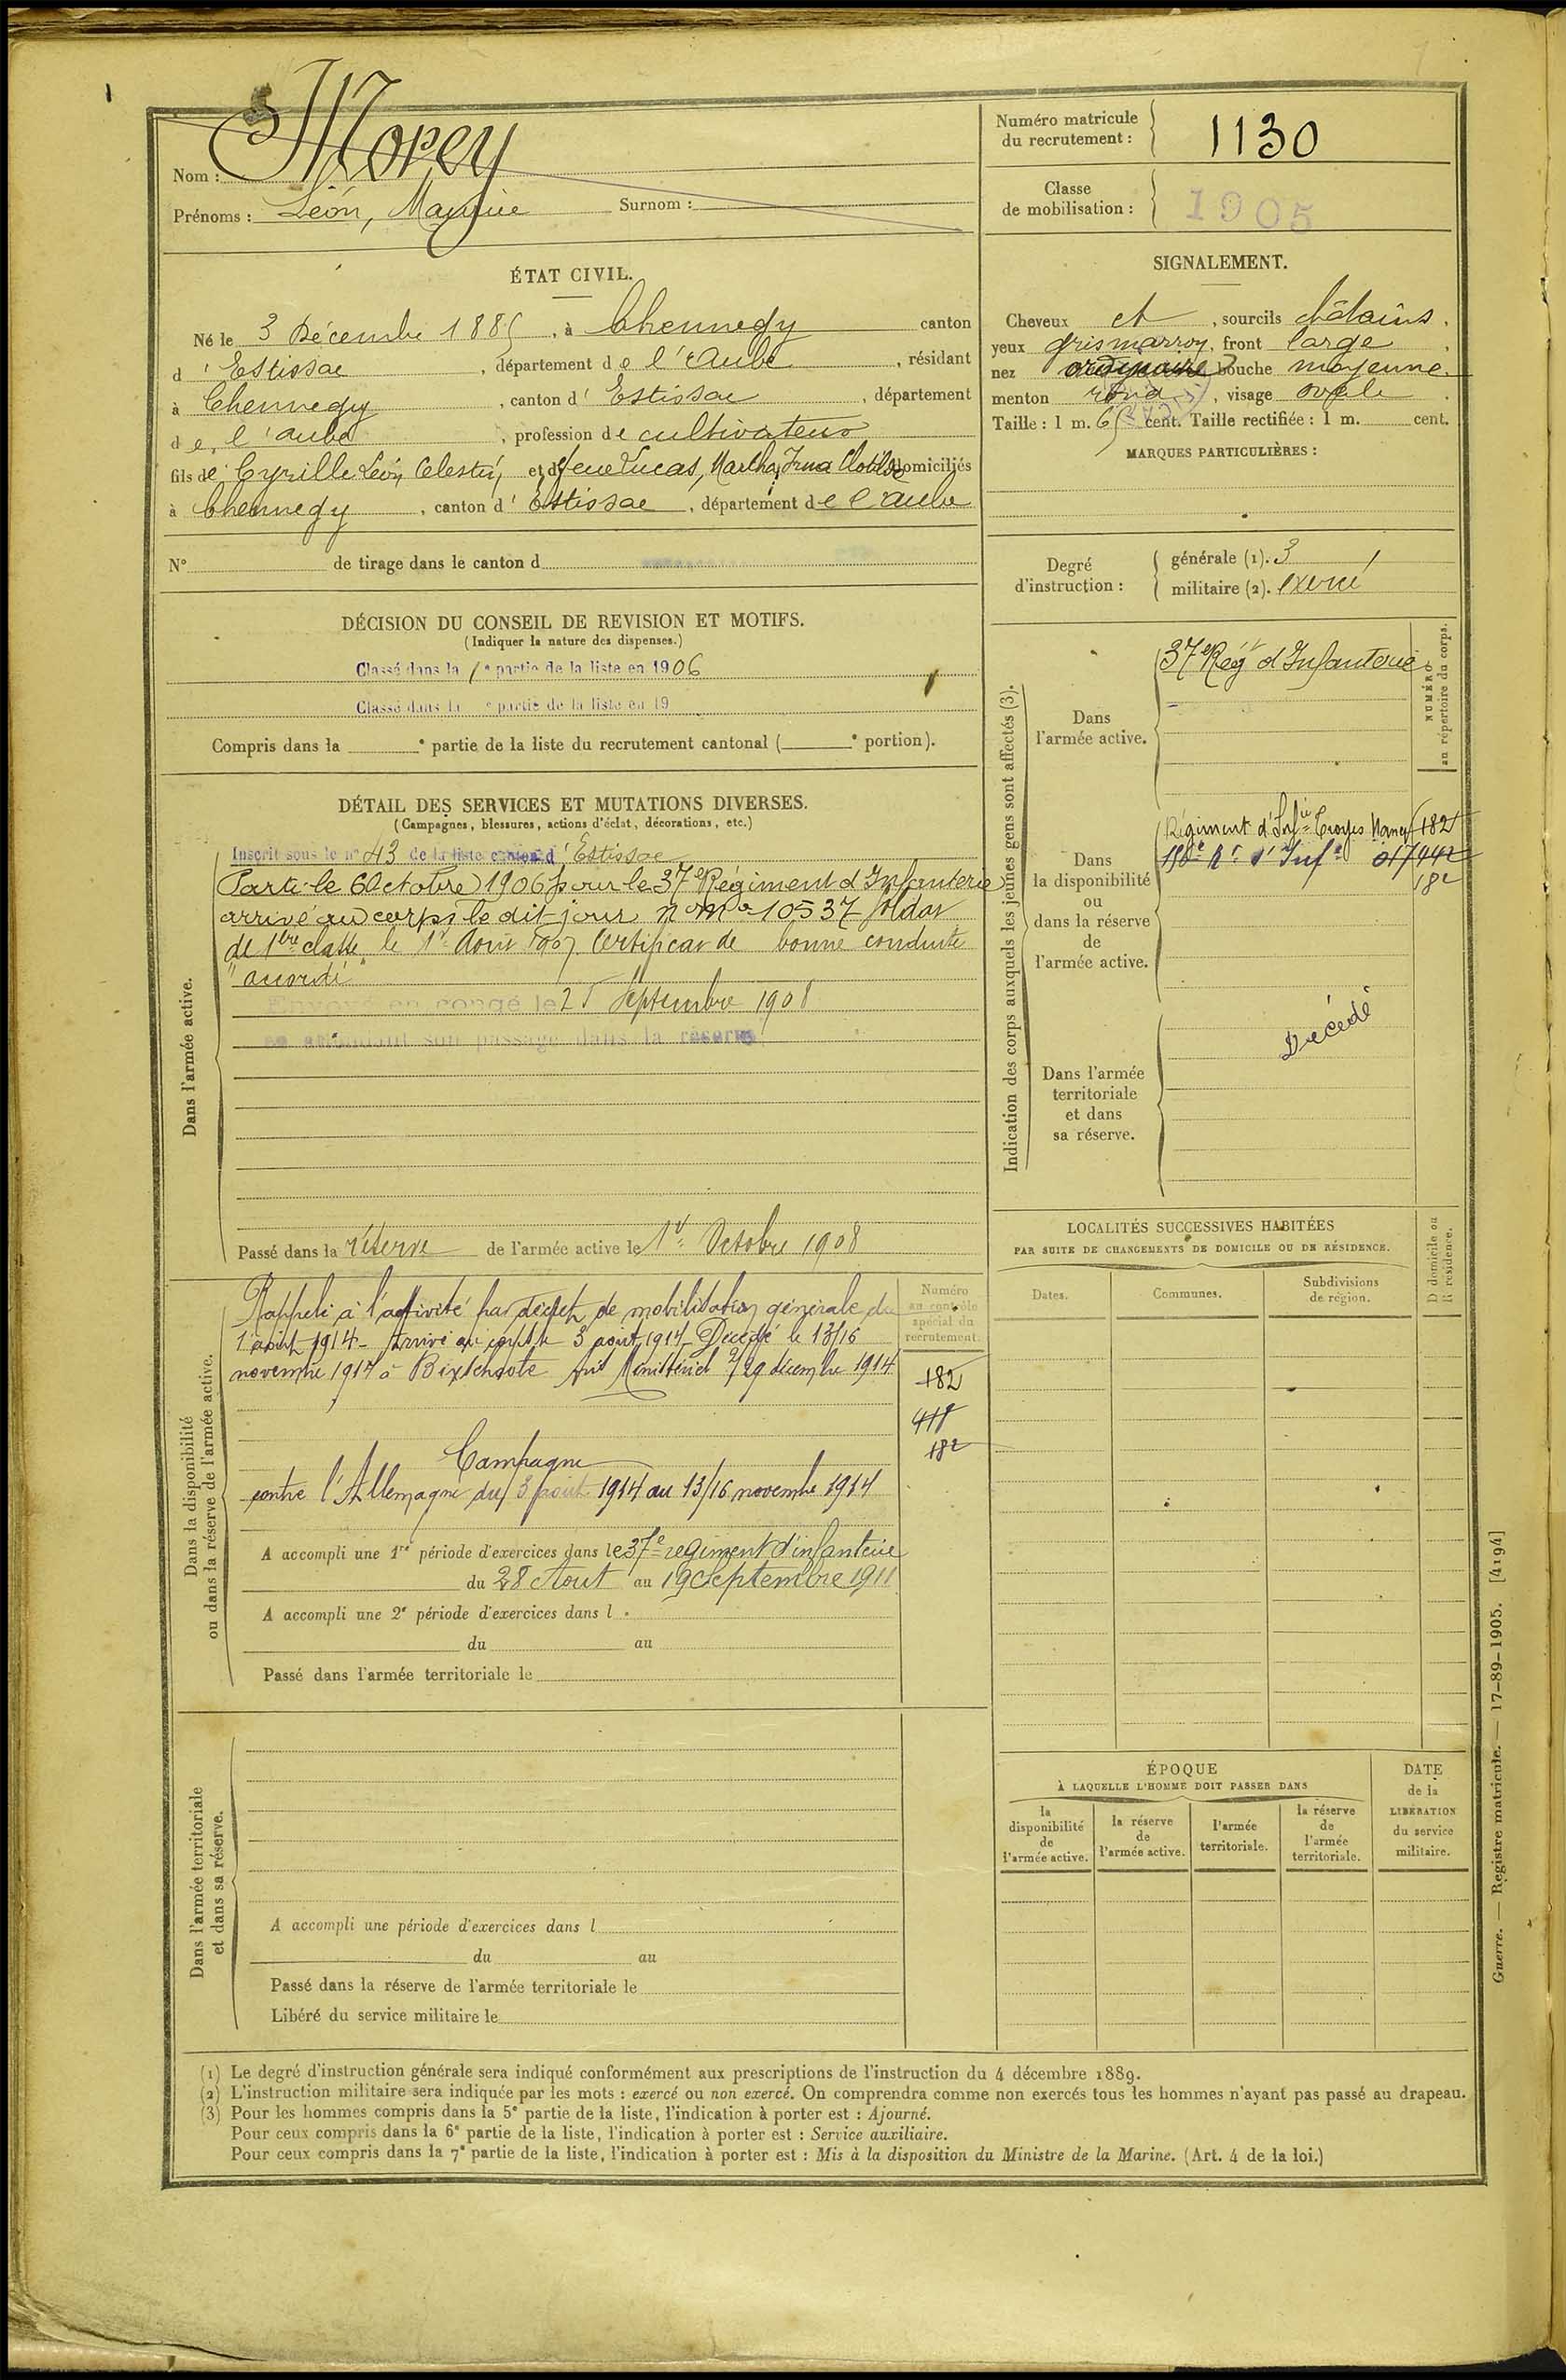 Nom : Morey
Prénoms : Léon, Maurice Surnom :
Numéro matricule du recrutement : 1130
Classe de mobilisation : 1905
ÉTAT CIVIL.
Né le 3 Décembre 1885, à Chennegy canton
d'Estissac, département de l'Aube, résidant
à Chennegy, canton d'Estissac, département
de l'aube, profession de cultivateur
fils de Cyrille Léon Celestin, et de feue Lucas, Martha, Irma Clotilde domiciliés
à Chennegy, canton d'Estissac, département de l'aube
N° de tirage dans le canton d
SIGNALEMENT.
Cheveux et, sourcils châtains,
yeux gris marron, front large,
nez ordinaire bouche moyenne,
menton rond, visage ovale.
Taille : 1 m. 65 cent. Taille rectifiée : 1 m. cent.
MARQUES PARTICULIÈRES :
Degré d'instruction : générale (1). 3
militaire (2). exercé
DÉCISION DU CONSEIL DE REVISION ET MOTIFS.
(Indiquer la nature des dispenses.)
Classé dans la 1e partie de la liste en 1906
Classé dans la e partie de la liste en 19
Compris dans la e partie de la liste du recrutement cantonal ( e portion).
DÉTAIL DES SERVICES ET MUTATIONS DIVERSES.
(Campagnes, blessures, actions d'éclat, décorations, etc.)
Dans l'armée active.
Inscrit sous le n° 43 de la liste canton d'Estissac
Parti le 6 Octobre 1906 pour le 37e Régiment d'Infanterie
arrivé au corps le dit jour n° Mle 10537 soldat
de 1ère classe le 1er Août 1907. Certificat de bonne conduite
"accordé"
Envoyé en congé le 25 Septembre 1908
en attendant son passage dans la réserve
Passé dans la réserve de l'armée active le 1er Octobre 1908
Dans la disponibilité
ou dans la réserve de l'armée active.
Numéro
au contrôle
spécial du
recrutement.
Rappelé à l'activité par décret de mobilisation générale du
1er août 1914 - Arrivé au corps le 3 août 1914 - Décédé le 13/16
novembre 1914 à Bixschoote Avis Ministériel du 29 décembre 1914
182
418
182
Campagne
contre l'Allemagne du 3 août 1914 au 13/16 novembre 1914
A accompli une 1re période d'exercices dans le 37e régiment d'infanterie
du 28 Aout au 19 Septembre 1911
A accompli une 2e période d'exercices dans l
du au
Passé dans l'armée territoriale le
Dans l'armée territoriale
et dans sa réserve.
A accompli une période d'exercices dans l
du au
Passé dans la réserve de l'armée territoriale le
Libéré du service militaire le
Indication des corps auxquels les jeunes gens sont affectés (3).
NUMÉRO
au répertoire du corps.
Dans
l'armée active.
37e Régt d'Infanterie
Dans
la disponibilité
ou
dans la réserve
de
l'armée active.
Régiment d'Infie Troyes Nancy 182
Rt d'Infie 017442
182
Dans l'armée
territoriale
et dans
sa réserve.
Décédé
LOCALITÉS SUCCESSIVES HABITÉES
PAR SUITE DE CHANGEMENTS DE DOMICILE OU DE RÉSIDENCE.
D domicile ou
R résidence.
Dates. Communes. Subdivisions de région.
ÉPOQUE
À LAQUELLE L'HOMME DOIT PASSER DANS
la disponibilité de l'armée active.
la réserve de l'armée active.
l'armée territoriale.
la réserve de l'armée territoriale.
DATE
de la
LIBÉRATION
du service
militaire.
Guerre. — Registre matricule. — 17-89-1905. [4194]
(1) Le degré d'instruction générale sera indiqué conformément aux prescriptions de l'instruction du 4 décembre 1889.
(2) L'instruction militaire sera indiquée par les mots : exercé ou non exercé. On comprendra comme non exercés tous les hommes n'ayant pas passé au drapeau.
(3) Pour les hommes compris dans la 5e partie de la liste, l'indication à porter est : Ajourné.
Pour ceux compris dans la 6e partie de la liste, l'indication à porter est : Service auxiliaire.
Pour ceux compris dans la 7e partie de la liste, l'indication à porter est : Mis à la disposition du Ministre de la Marine. (Art. 4 de la loi.)